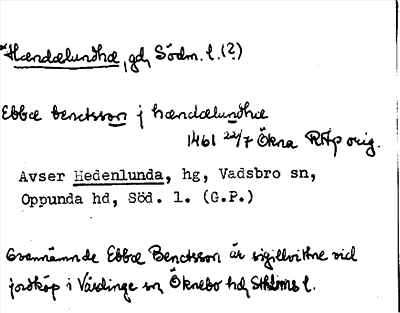 Hændælundhæ, gd, Södm. l. (?)
Ebbæ benctsson j hændælundhæ
1461 22/7 Ökna RAp orig.
Avser Hedenlunda, hg, Vadsbro sn,
Oppunda hd, Söd. l. (G.P.)
Ovannämnde Ebbæ Benctsson är sigillvittne vid
jordköp i Vårdinge sn Öknebo hd, Sthlms l.